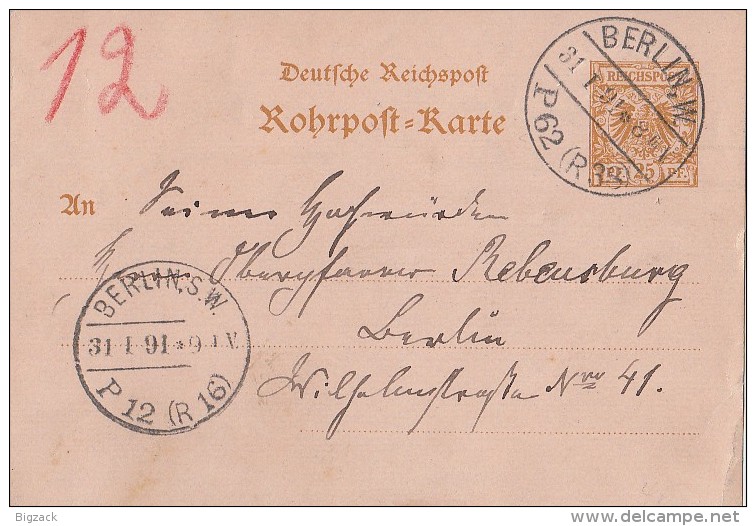 12
Deutsche Reichspost
Rohrpost=Karte
REICHSPOST
25 PF.
BERLIN, W.
31 I 91 * 8
P 62 (R 33)
An Seiner Hochwürden
Herrn Oberpfarrer Rebensburg
Berlin
Wilhelmstraße Nro 41.
BERLIN, S.W.
31 I 91 * 9 V.
P 12 (R 16)
Bigzack
delcampe.net